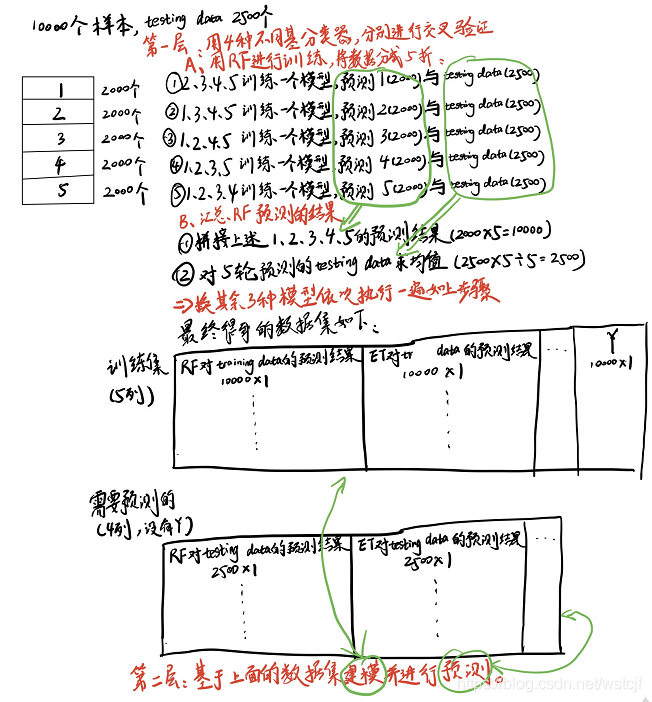 10000个样本, testing data 2500个
第一层: 用4种不同基分类器, 分别进行交叉验证
A、用RF进行训练, 将数据分成5折:
1 2000个
2 2000个
3 2000个
4 2000个
5 2000个
①2.3.4.5训练一个模型, 预测1(2000)与testing data(2500)
②1.3.4.5训练一个模型, 预测2(2000)与testing data(2500)
③1.2.4.5训练一个模型, 预测3(2000)与testing data(2500)
④1.2.3.5训练一个模型, 预测4(2000)与testing data(2500)
⑤1.2.3.4训练一个模型, 预测5(2000)与testing data(2500)
B、汇总RF预测的结果
①拼接上述1、2、3、4、5的预测结果(2000×5=10000)
②对5轮预测的testing data求均值(2500×5÷5=2500)
⇒换其余3种模型依次执行一遍如上步骤
最终得到的数据集如下:
训练集
(5列)
RF对training data的预测结果
10000×1
ET对tr data的预测结果
10000×1
...
Y
10000×1
需要预测的
(4列, 没有Y)
RF对testing data的预测结果
2500×1
ET对testing data的预测结果
2500×1
...
第二层: 基于上面的数据集建模并进行预测。
https://blog.csdn.net/wstcjf